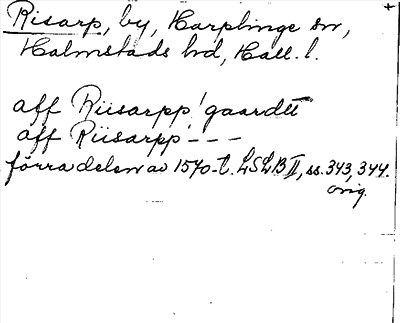 Risarp, by, Harplinge sn,
Halmstads hd, Hall. l.
aff Riisarpp! gaardtt
aff Riisarpp! - - -
förra delen av 1570-t. LSLB II, ss. 343, 344.
orig.